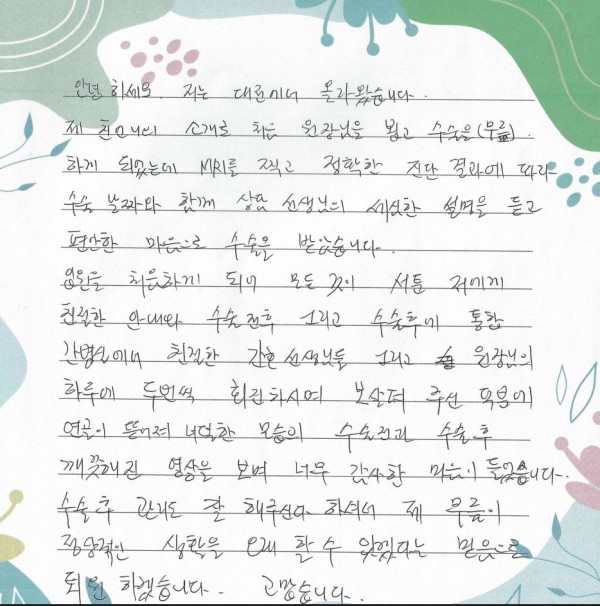 안녕하세요. 저는 대전에서 올라왔습니다.
제 친언니의 소개로 처음 원장님을 뵙고 수술을(무릎)
하게 되었는데 MRI를 찍고 정확한 진단 결과에 따라
수술 날짜와 함께 상담 선생님의 세심한 설명을 듣고
편안한 마음으로 수술을 받았습니다.
입원을 처음하게 되어 모든 것이 서툰 저에게
친절한 안내와 수술전후 그리고 수술후에 통합
간병실에서 친절한 간호선생님들 그리고 원장님의
하루에 두번씩 회진하시며 보살펴 주신 덕분에
연골이 뜯어져 너덜한 모습의 수술전과 수술후
깨끗해진 영상을 보며 너무 감사한 마음이 들었습니다.
수술후 관리도 잘 해주신다 하셔서 제 무릎이
정상적인 생활을 오래 할 수 있겠다는 믿음으로
퇴원 하겠습니다. 고맙습니다.